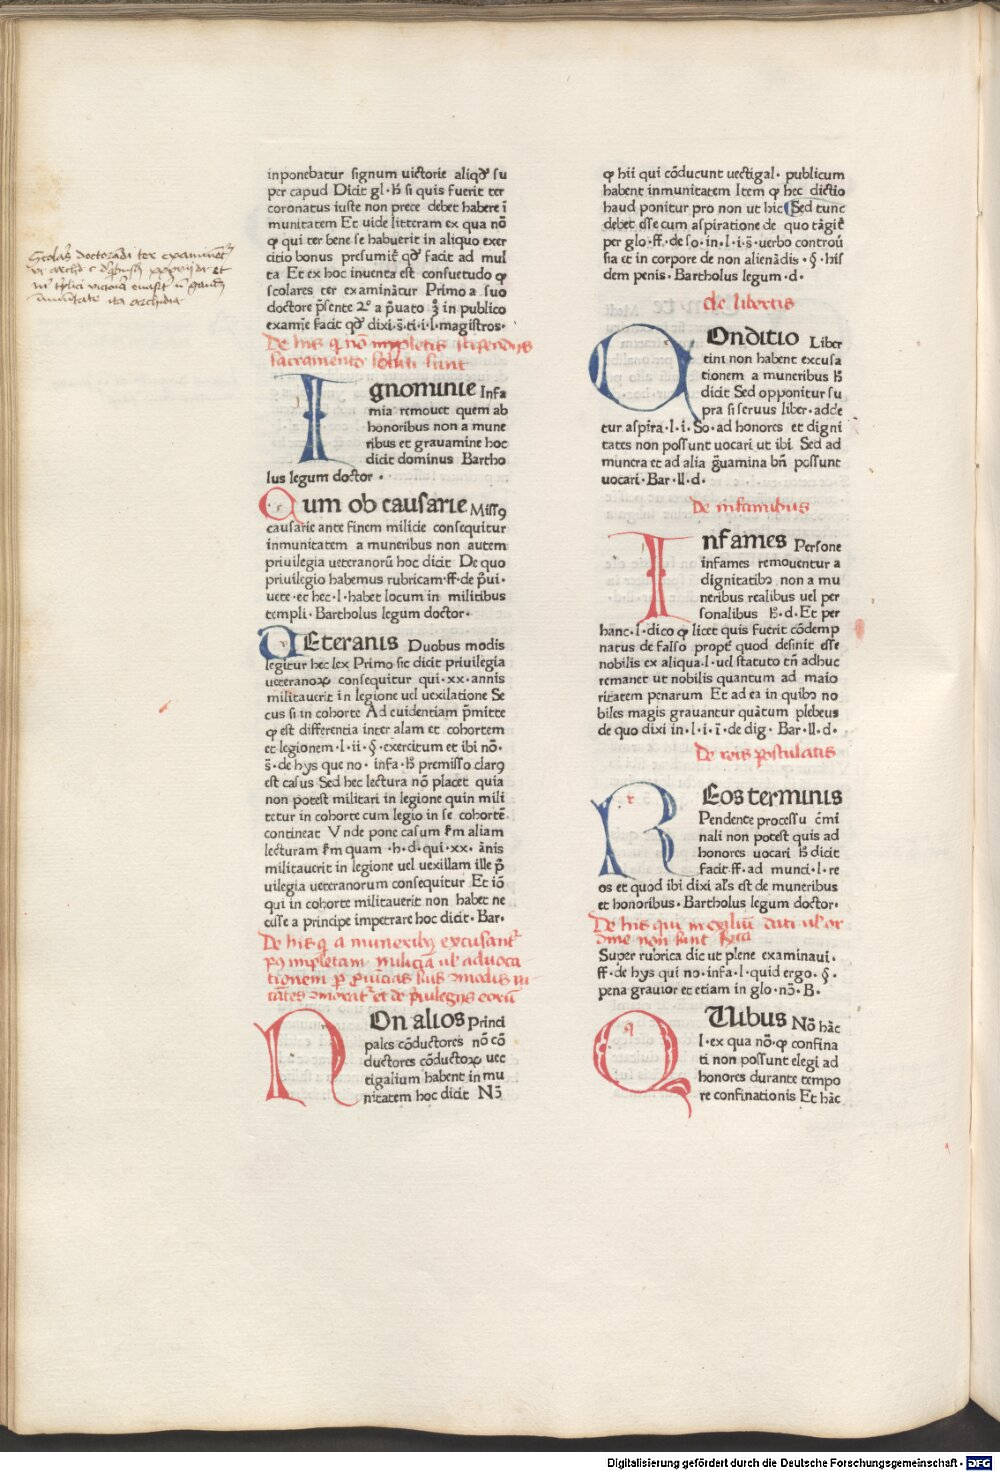 inponebatur signum uictorie aliqd̛ su
per capud Dicit gl·ħ si quis fuerit ter
coronatus iuste non prece debet habere ī
munitatem Et uide litteram ex qua nō
ꝙ qui ter bene se habuerit in aliquo exer
citio bonus presumit᷑ qd̛ facit ad mul
ta Et ex hoc inuenta est consuetudo ꝙ
scolares ter examinātur Primo a suo
doctore p̄sente 2º a p̄uato 3 in publico
examīe facit qd̛ dixi·s̄·ti·i·l·magistros·
De his q̄ nō impletis stipendijs
sacramento soluti sunt
Ignominie Infa
mia remouet quem ab
honoribus non a mune
ribus et grauamine hoc
dicit dominus Bartho
lus legum doctor ·
Qum ob causarie Missꝯ
causarie ante finem milicie consequitur
inmunitatem a muneribus non autem
priuilegia ueteranorū hoc dicit De quo
priuilegio habemus rubricam·ff·de p̄ui·
uete·et hec·l·habet locum in militibus
templi·Bartholus legum doctor·
VEteranis Duobus modis
legitur hec lex Primo sic dicit priuilegia
ueteranoꝝ consequitur qui·xx·annis
militauerit in legione uel uexilatione Se
cus si in cohorte Ad euidentiam p̄mitte
ꝙ est differentia inter alam et cohortem
et legionem·l·ii·§·exercitum et ibi nō·
s̄·de hys que no·infa·ħ premisso clarꝯ
est casus Sed hec lectura nō placet quia
non potest militari in legione quin mili
tetur in cohorte cum legio in se cohortē
contineat Vnde pone casum s̄m aliam
lecturam s̄m quam ·h·d·qui·xx· ānis
militauerit in legione uel uexillam ille p̄
uilegia ueteranorum consequitur Et iō
qui in cohorte militauerit non habet ne
cesse a principe impetrare hoc dicit·Bar·
De his q̄ a muneribꝯ excusant᷑
pꝯ impletam miliciā ul̛ aduoca
tionem
Non alios Princi
pales cōductores nō cō
ductores cōductoꝝ uec
tigalium habent in mu
nitatem hoc dicit Nō
ꝙ hii qui cōducunt uectigal· publicum
habent inmunitatem Item ꝙ hec dictio
haud ponitur pro non ut hic Sed tunc
debet esse cum aspiratione de quo tāgit᷑
per glo·ff·de so·in·l·i·s̄·uerbo controū
sia et in corpore de non alienādis·§·his
dem penis·Bartholus legum·d·
de libertis
Conditio Liber
tini non habent excusa
tionem a muneribus ħ
dicit Sed opponitur su
pra si seruus liber·adde
tur aspira·l·i·So·ad honores et digni
tates non possunt uocari ut ibi Sed ad
munera et ad alia g̈uamina bn̄ possunt
uocari·Bar·ll·d·
De infamibus
Infames Persone
infames remouentur a
dignitatibꝯ non a mu
neribus realibus uel per
sonalibus ħ·d·Et per
hānc·l·dico ꝙ licet quis fuerit cōdemp
natus de falso propt᷑ quod desinit esse
nobilis ex aliqua·l·uel statuto tn̄ adhuc
remanet ut nobilis quantum ad maio
ritatem penarum Et ad ea in quibꝯ no
biles magis grauantur quātum plebeus
de quo dixi in·l·i·ī·de dig·Bar·ll·d·
De reis postulatis
REos terminis
Pendente processu c᷑mi
nali non potest quis ad
honores uocari ħ dicit
facit·ff·ad munci·l·re
os et quod ibi dixi al̛s est de muneribus
et honoribus·Bartholus legum doctor·
De his qui in exiliū dati ul̛ or
dine moti sunt
Super rubrica dic ut plene examinaui·
ff·de hys qui no·infa·l·quid ergo·§·
pena grauior et etiam in glo·nō·B·
QUibus Nō hāc
l·ex qua nō·ꝙ confina
ti non possunt elegi ad
honores durante tempo
re confinationis Et hāc
Digitalisierung gefördert durch die Deutsche Forschungsgemeinschaft - DFG